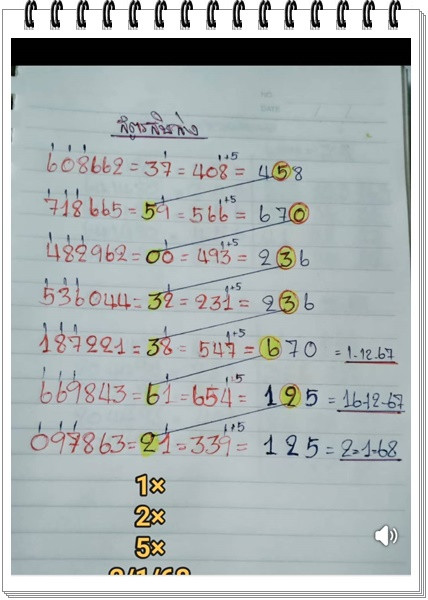 สูตรสินล่าง
608662 = 37 = 408 1+5 = 458
718665 = 59 = 566 1+5 = 670
482962 = 00 = 493 1+5 = 236
536044 = 32 = 231 1+5 = 236
187221 = 38 = 547 1+5 = 670 = 1-12-67
669843 = 61 = 654 1+5 = 125 = 16-12-67
097863 = 21 = 339 1+5 = 125 = 2-1-68
1×
2×
5×
2/1/68